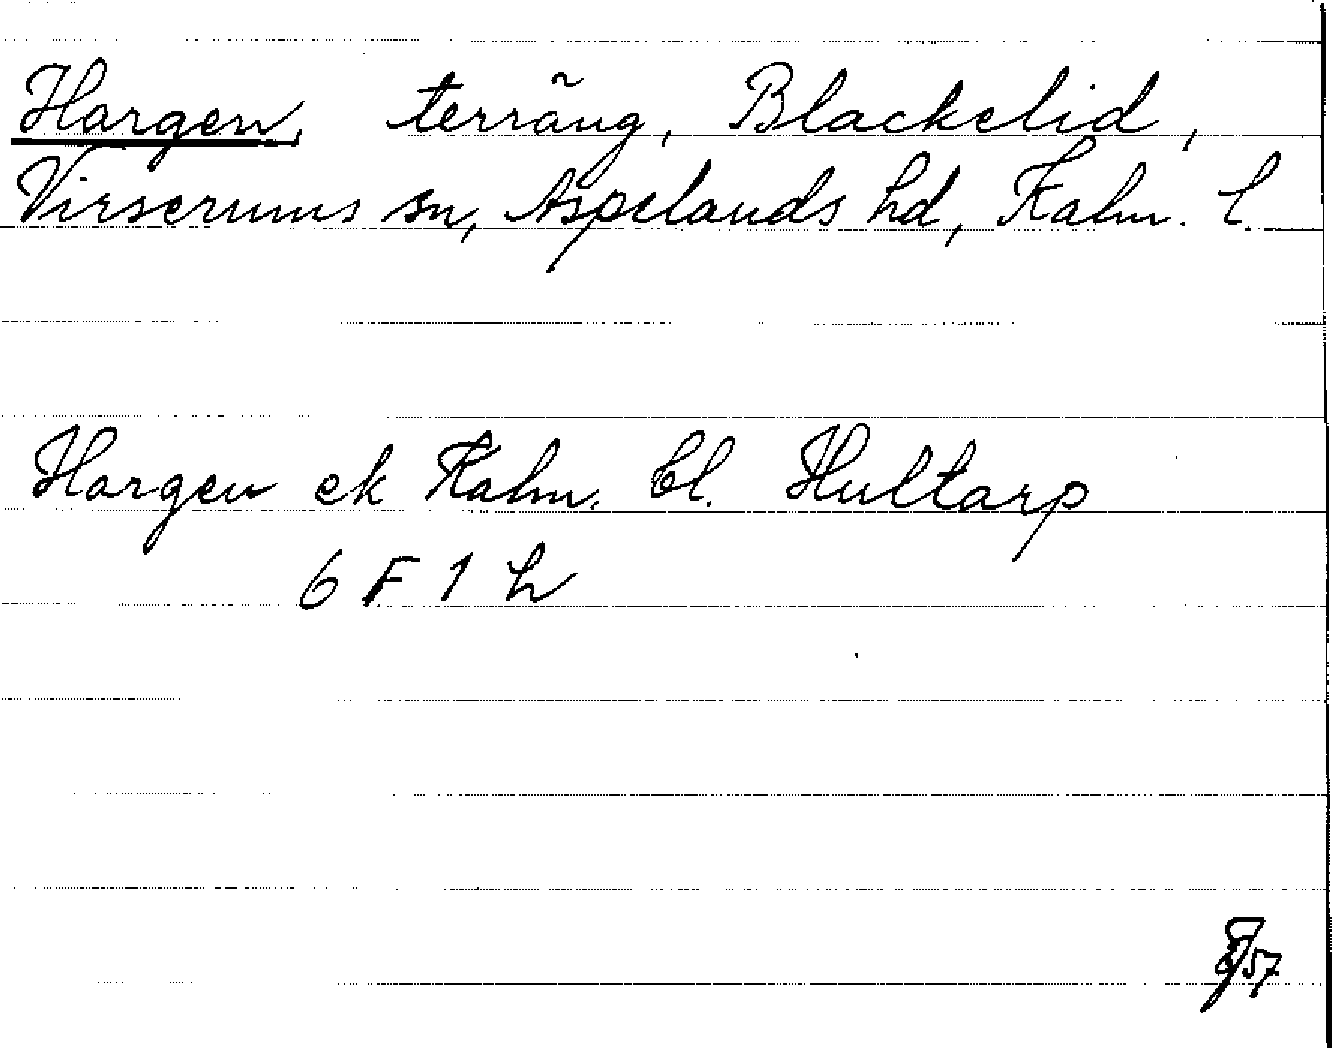 Hargen, terräng, Blackelid,
Virserums sn, Aspelands hd, Kalm. l
Hargen ek Kalm. bl. Hultarp
6 F 1 h